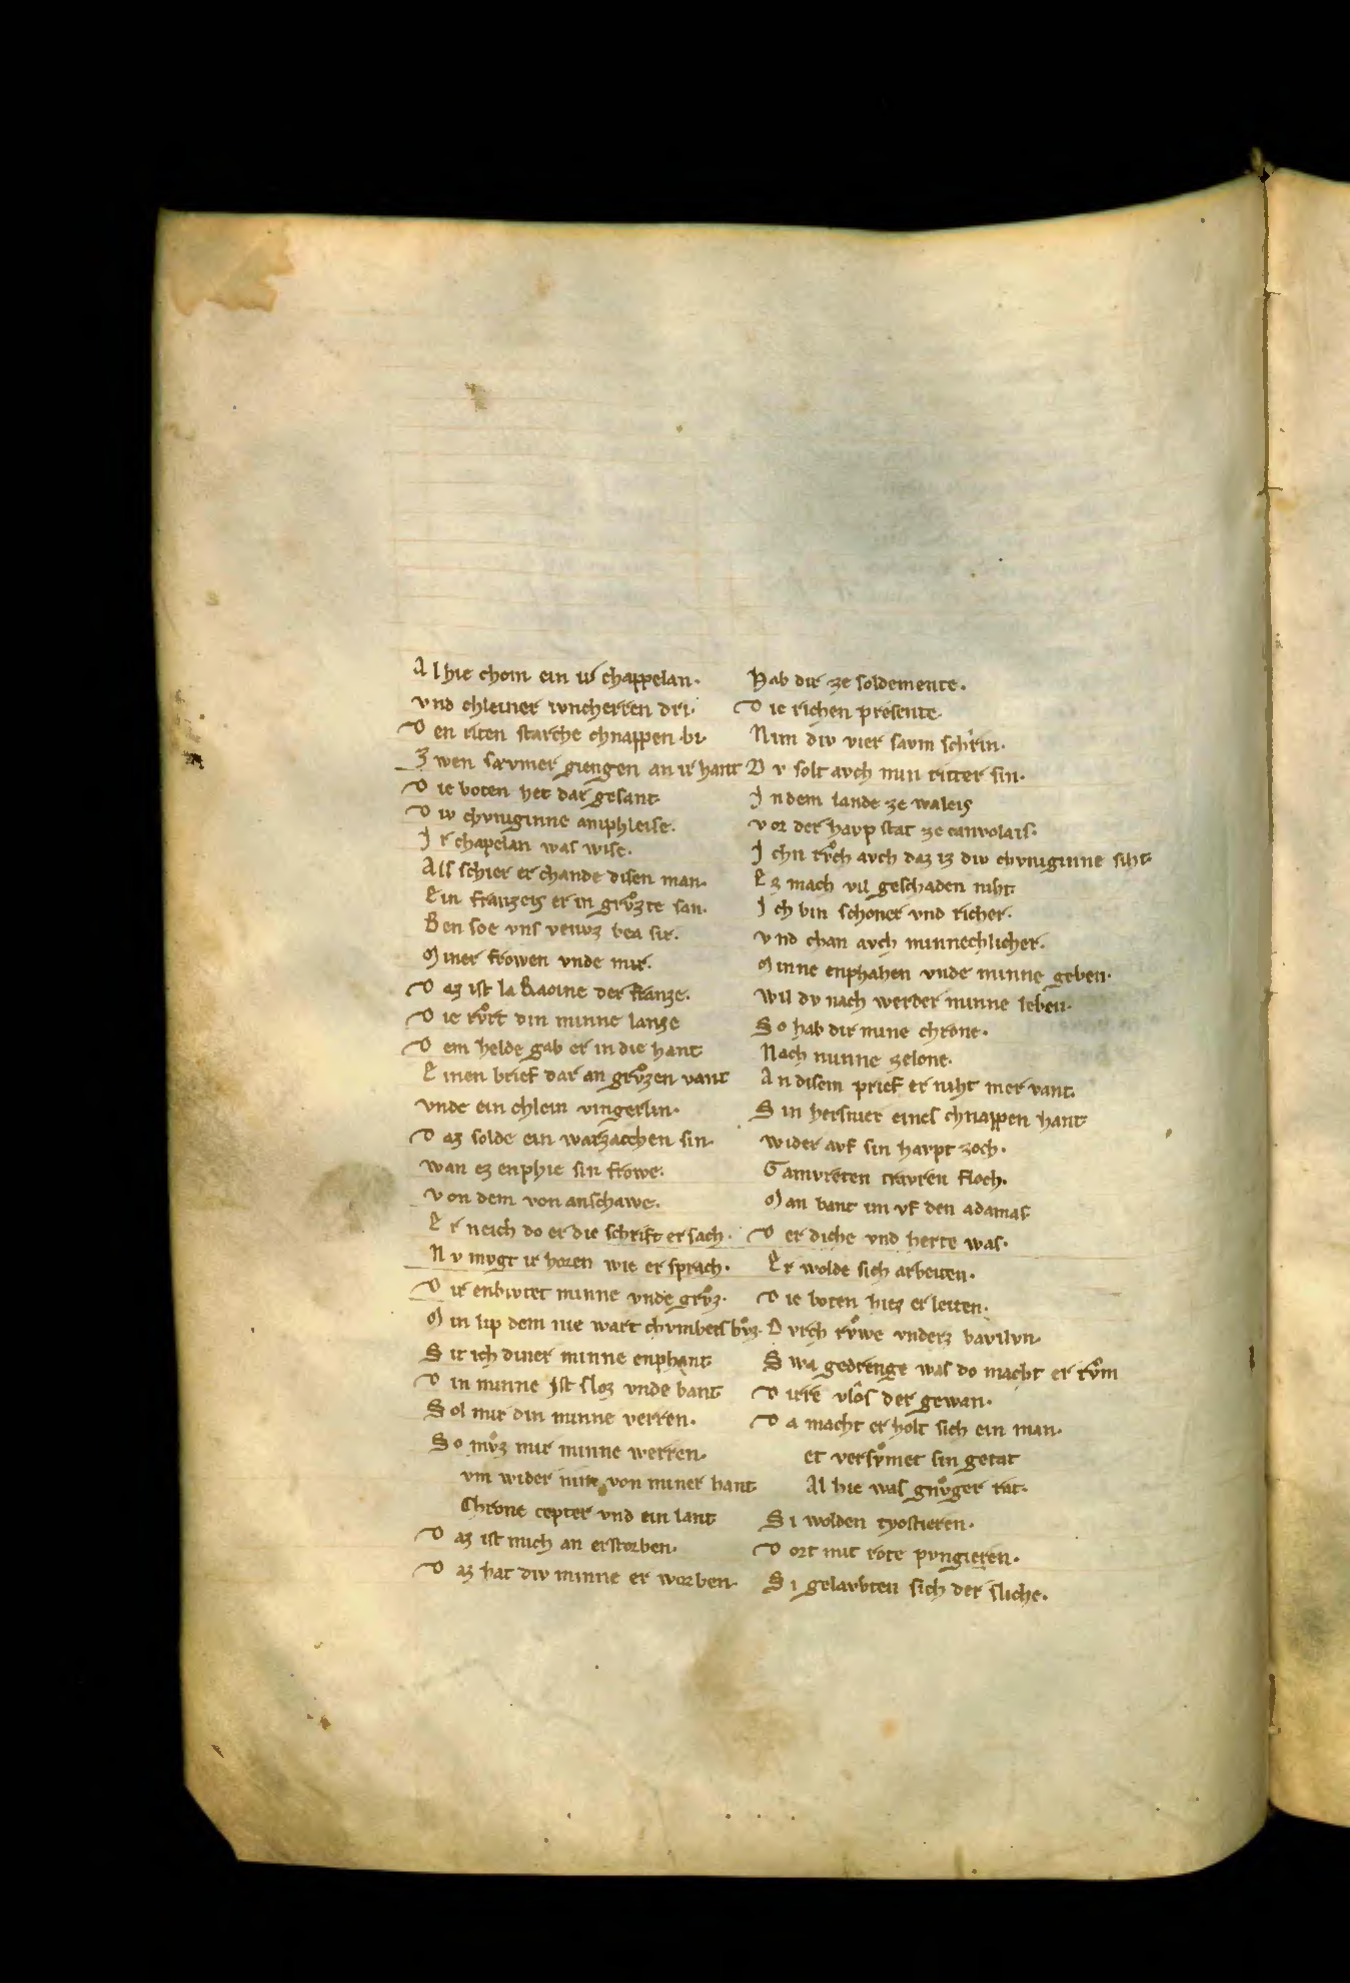 Al hie chom ein ir chappelan.
vnd chleiner ivncherren dri.
Den riten starche chnappen bi.
Zwen sævmer giengen an ir hant
Die boten het dar gesant
Div chvniginne amphleise.
Ir chapelan was wise.
Als schier er chande disen man.
Ein franzeis er in grůzte san.
Ben soe vns venuz bea sir.
Miner frowen vnde mir.
Daz ist la Raoine der franze.
Die růrt din minne lanze
Dem helde gab er in die hant
Einen brief dar an grůzen vant
vnde ein chlein vingerlin.
Daz solde ein warzaechen sin.
wan ez enphie sin frowe.
von dem von anschawe.
Er neich do er die schrift ersach.
Nv mvgt ir horen wie er sprach.
Dir enbivtet minne vnde grůz.
Min lip dem nie wart chvmbers bůz.
Sit ich diner minne enphant
Din minne ist sloz vnde bant
Sol mir din minne verren.
So můz mir minne werren.
vm wider nim von miner hant
Chrone cepter vnd ein lant
Daz ist mich an erstorben.
Daz hat div minne er worben.
Hab dir ze soldemente.
Die richen presente.
Nim div vier savm schrin.
Dv solt avch min ritter sin.
In dem lande ze waleis
vor der havp stat ze canvolais.
Ichn rvͦch avch daz iz div chvniginne siht
Ez mach vil geschaden niht
Ich bin schoner vnd richer.
vnd chan avch minnechlicher.
Minne enphahen vnde minne geben.
Wil dv nach werder minne leben.
So hab dir mine chrone.
Nach minne zelone.
An disem prief er niht mer vant.
Sin hersnier eines chnappen hant
wider avf sin havpt zoch.
Gamvreten travren floch.
Man bant im vf den adamas
Der diche vnd herte was.
Er wolde sich arbeiten.
Die boten hiez er leiten.
Dvrch růwe vnderz bavilvn.
Swa gedrenge was do macht er rvͦm
Dirre vlôs der gewan.
Da macht er holt sich ein man.
et versvͦmet sin getat
Al hie was gnůger rat.
Si wolden tyostieren.
Dort mit rote pvngieren.
Si gelavbten sich der sliche.